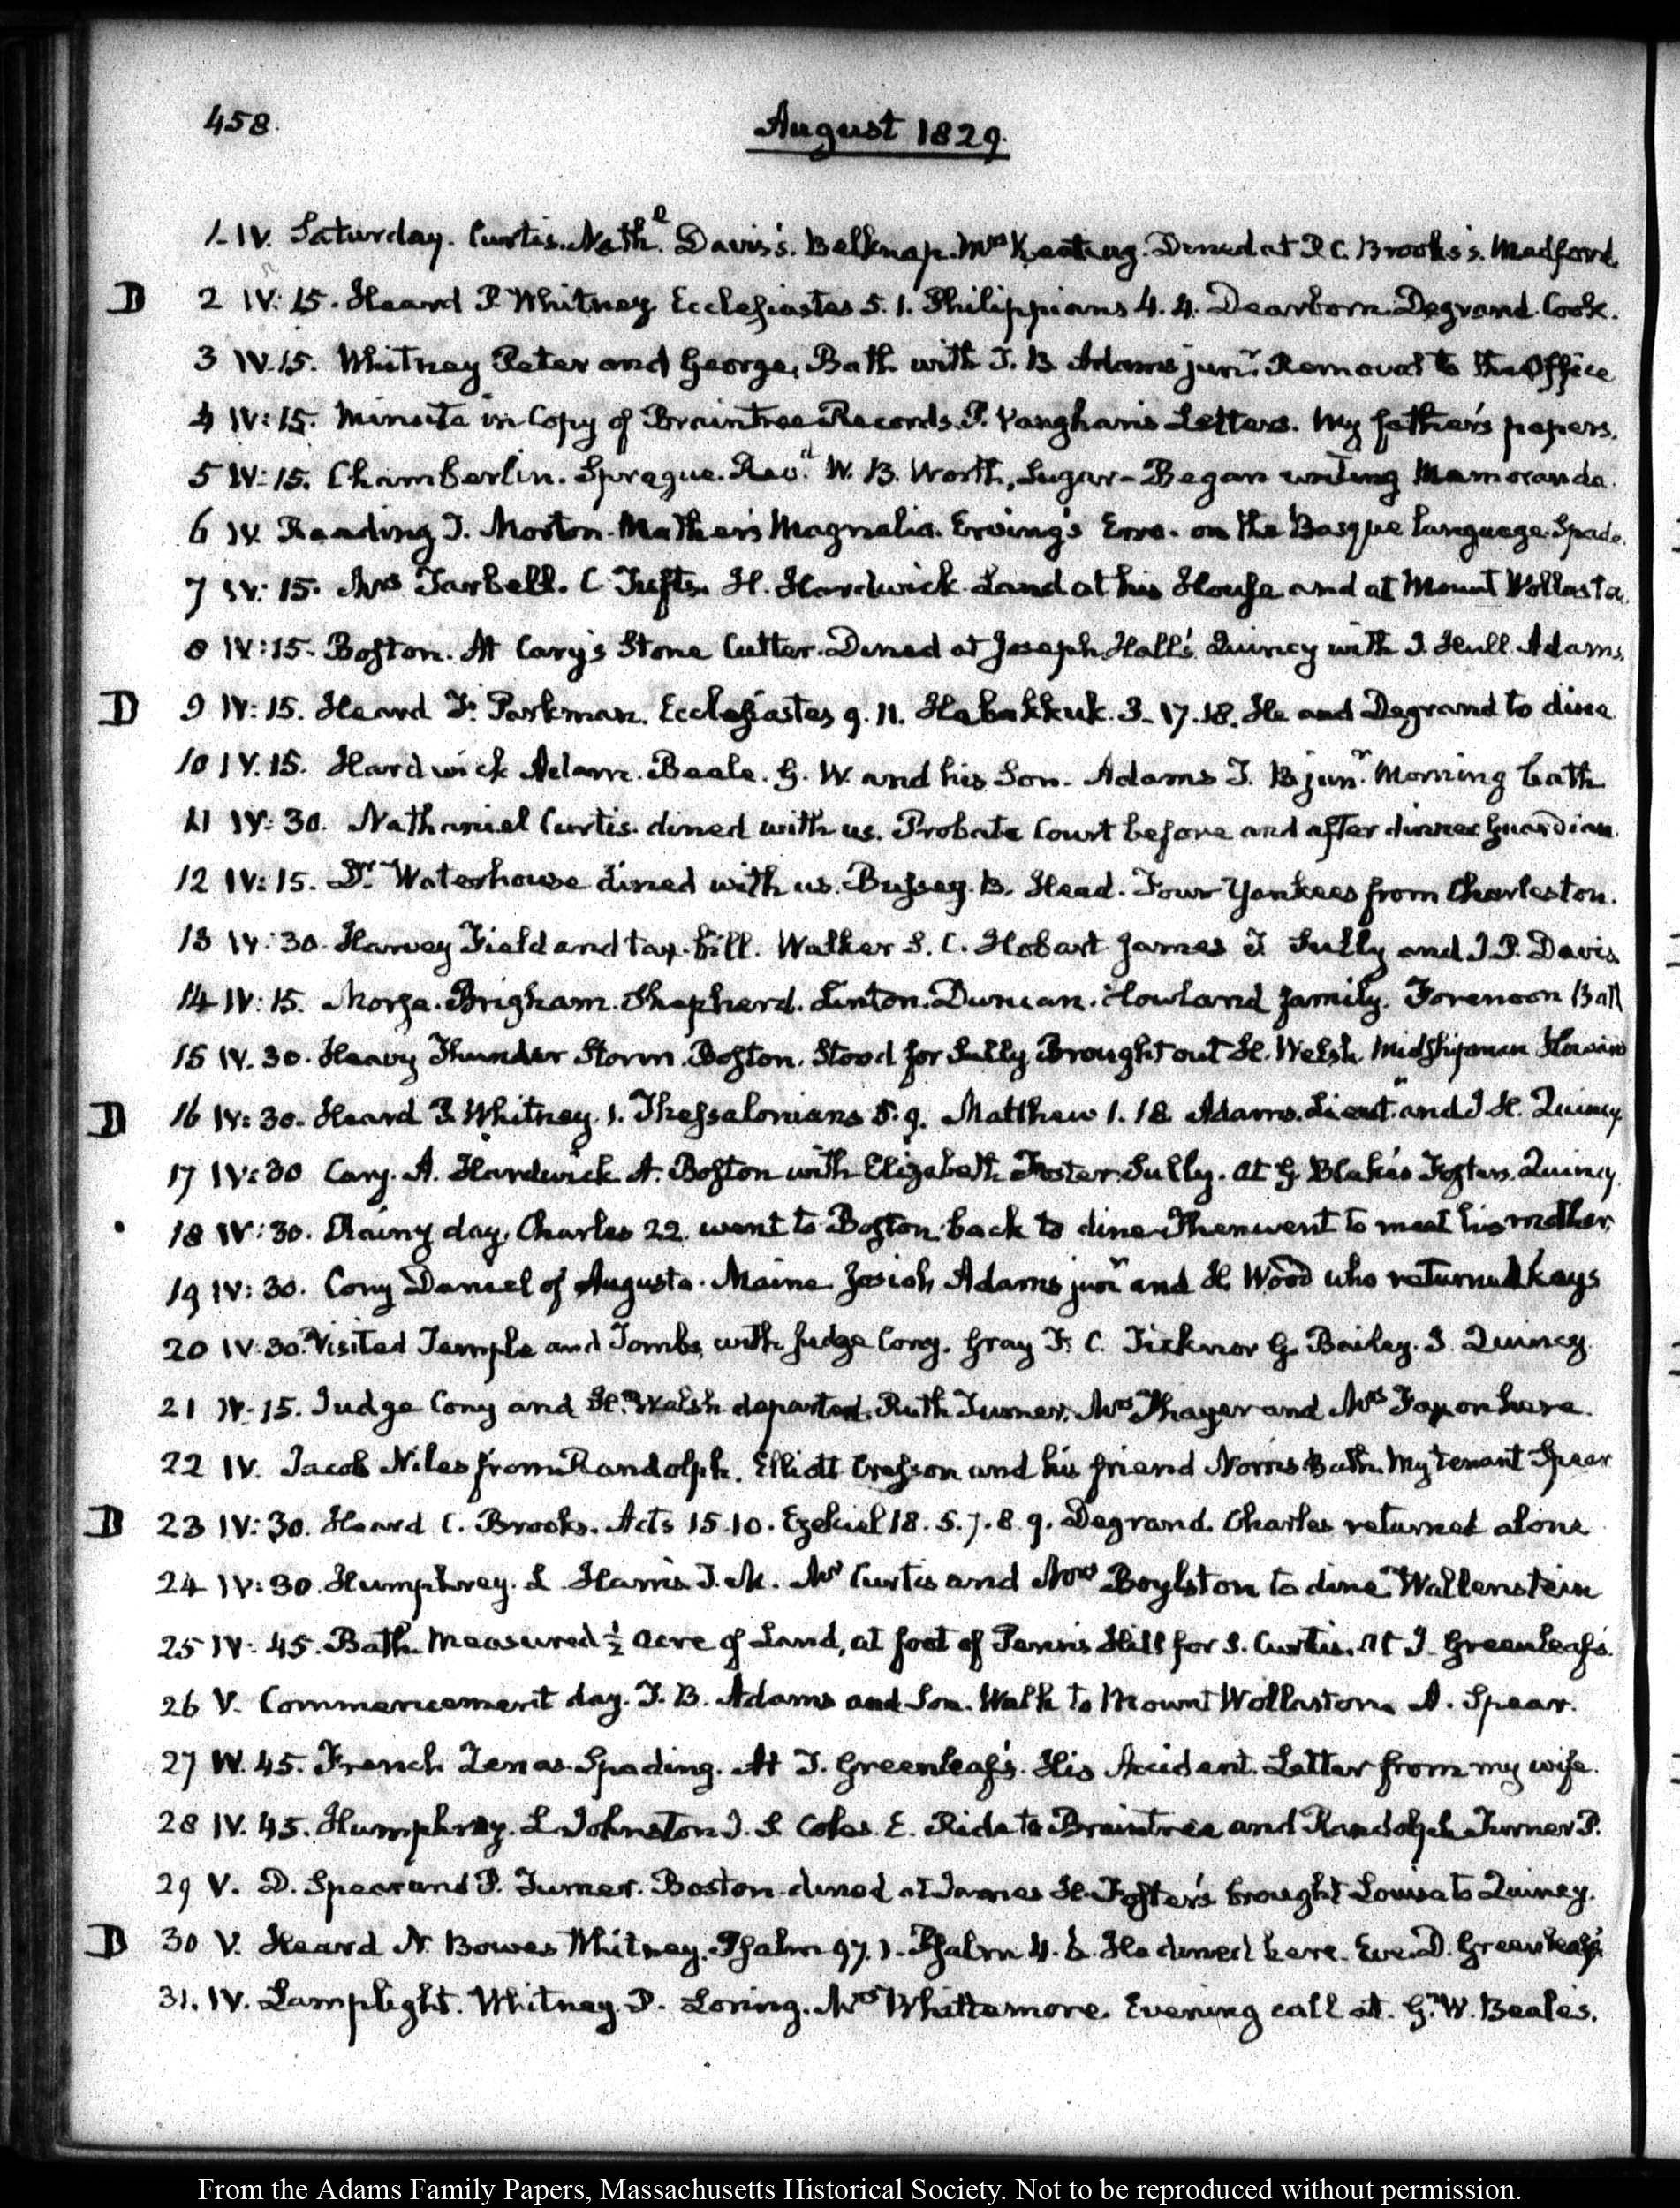 458.
August 1829.
1. IV. Saturday. Curtis. Nath.l Davis's. Belknap. Mrs Keating. Dined at P. C. Brooks's. Medford.
D 2 IV: 15. Heard P. Whitney. Ecclesiastes 5. 1. Philippians 4. 4. Dearborn. Degrand. Cook.
3 IV. 15. Whitney Peter and George. Bath with J. B. Adams junr. Removal to the Office
4 IV: 15. Minute in Copy of Braintree Records. P. Vaughan's Letters. My father's papers.
5 IV: 15. Chamberlin. Sprague. Revd. W. B. Worth, Sugar - Began writing Memoranda.
6 IV. Reading T. Morton. Mather's Magnalia. Erving's on the Basque language. Spade.
7 IV: 15. Mrs Tarbell. C Tufts. H. Hardwick. Land at his House and at Mount Wollasta.
8 IV: 15. Boston. At Cary's Stone Cutter. Dined at Joseph Hall's. Quincy with I. Hull Adams.
D 9 IV: 15. Heard F. Parkman. Ecclesiastes 9. 11. Habakkuk. 3. 17. 18. He and Degrand to dine
10 IV. 15. Hardwick Adam. Beale. G. W. and his Son. Adams J. B junr. Morning bath
11 IV: 30. Nathaniel Curtis dined with us. Probate Court before and after dinner Guardian.
12 IV: 15. Dr. Waterhouse dined with us. Bussey. B. Head. Four Yankees from Charleston.
13 IV: 30. Harvey Field and tax-bill. Walker S. C. Hobart James T Sully and I. P. Davis
14 IV: 15. Morse. Brigham. Shepherd. Linton. Duncan. Howland family. Forenoon Bath
15 IV. 30. Heavy Thunder Storm. Boston. Stood for Sully. Brought out H. Welsh. Midshipman
D 16 IV: 30. Heard P. Whitney. 1. Thessalonians 5. 9. Matthew 1. 18. Adams. Lieut. and I H. Quincy
17 IV: 30 Cary. A. Hardwick A. Boston with Elizabeth Foster. Sully. At G. Blake's Fosters. Quincy
18 IV: 30. Rainy day. Charles 22. went to Boston. back to dine Then went to meet his mother.
19 IV: 30. Cony Daniel of Augusta. Maine Josiah Adams junr and H. Wood who returned keys
20 IV. 30. Visited Temple and Tombs with Judge Cony. Gray F. C. Ticknor G. Bailey. J. Quincy.
21 IV. 15. Judge Cony and H. Welsh departed. Ruth Turner. Mrs Thayer and Mrs Faxon here.
22 IV. Jacob Niles from Randolph. Elliott Cresson and his friend Norris Bath. My tenant Spear
D 23 IV: 30. Heard C. Brooks. Acts 15. 10. Ezekiel 18. 5. 7. 8. 9. Degrand. Charles returned alone
24 IV: 30. Humphrey. L Harris T. M. Mr Curtis and Mrs Boylston to dine. Wallenstein
25 IV: 45. Bath. Measured ½ acre of Land, at foot of Penn's Hill for S. Curtis. At T. Greenleaf's.
26 V. Commencement day. T. B. Adams and Son. Walk to Mount Wollaston. A. Spear.
27 IV. 45. French Lenas. Spading. At T. Greenleaf's. His Accident. Letter from my wife.
28 IV. 45. Humphrey. L Johnston J. S. Coles. E. Ride to Braintree and Randolph Turner P.
29 V. D. Spear and P. Turner. Boston dined at James H. Foster's brought Louisa to Quincy.
D 30 V. Heard N. Bowes Whitney. Psalm 97. 1. Psalm 4. 6. He dined here. Eve. D. Greenleaf's
31. IV. Lamplight. Whitney. P. Loring. Mrs Whittemore. Evening call at G. W. Beale's.
From the Adams Family Papers, Massachusetts Historical Society. Not to be reproduced without permission.